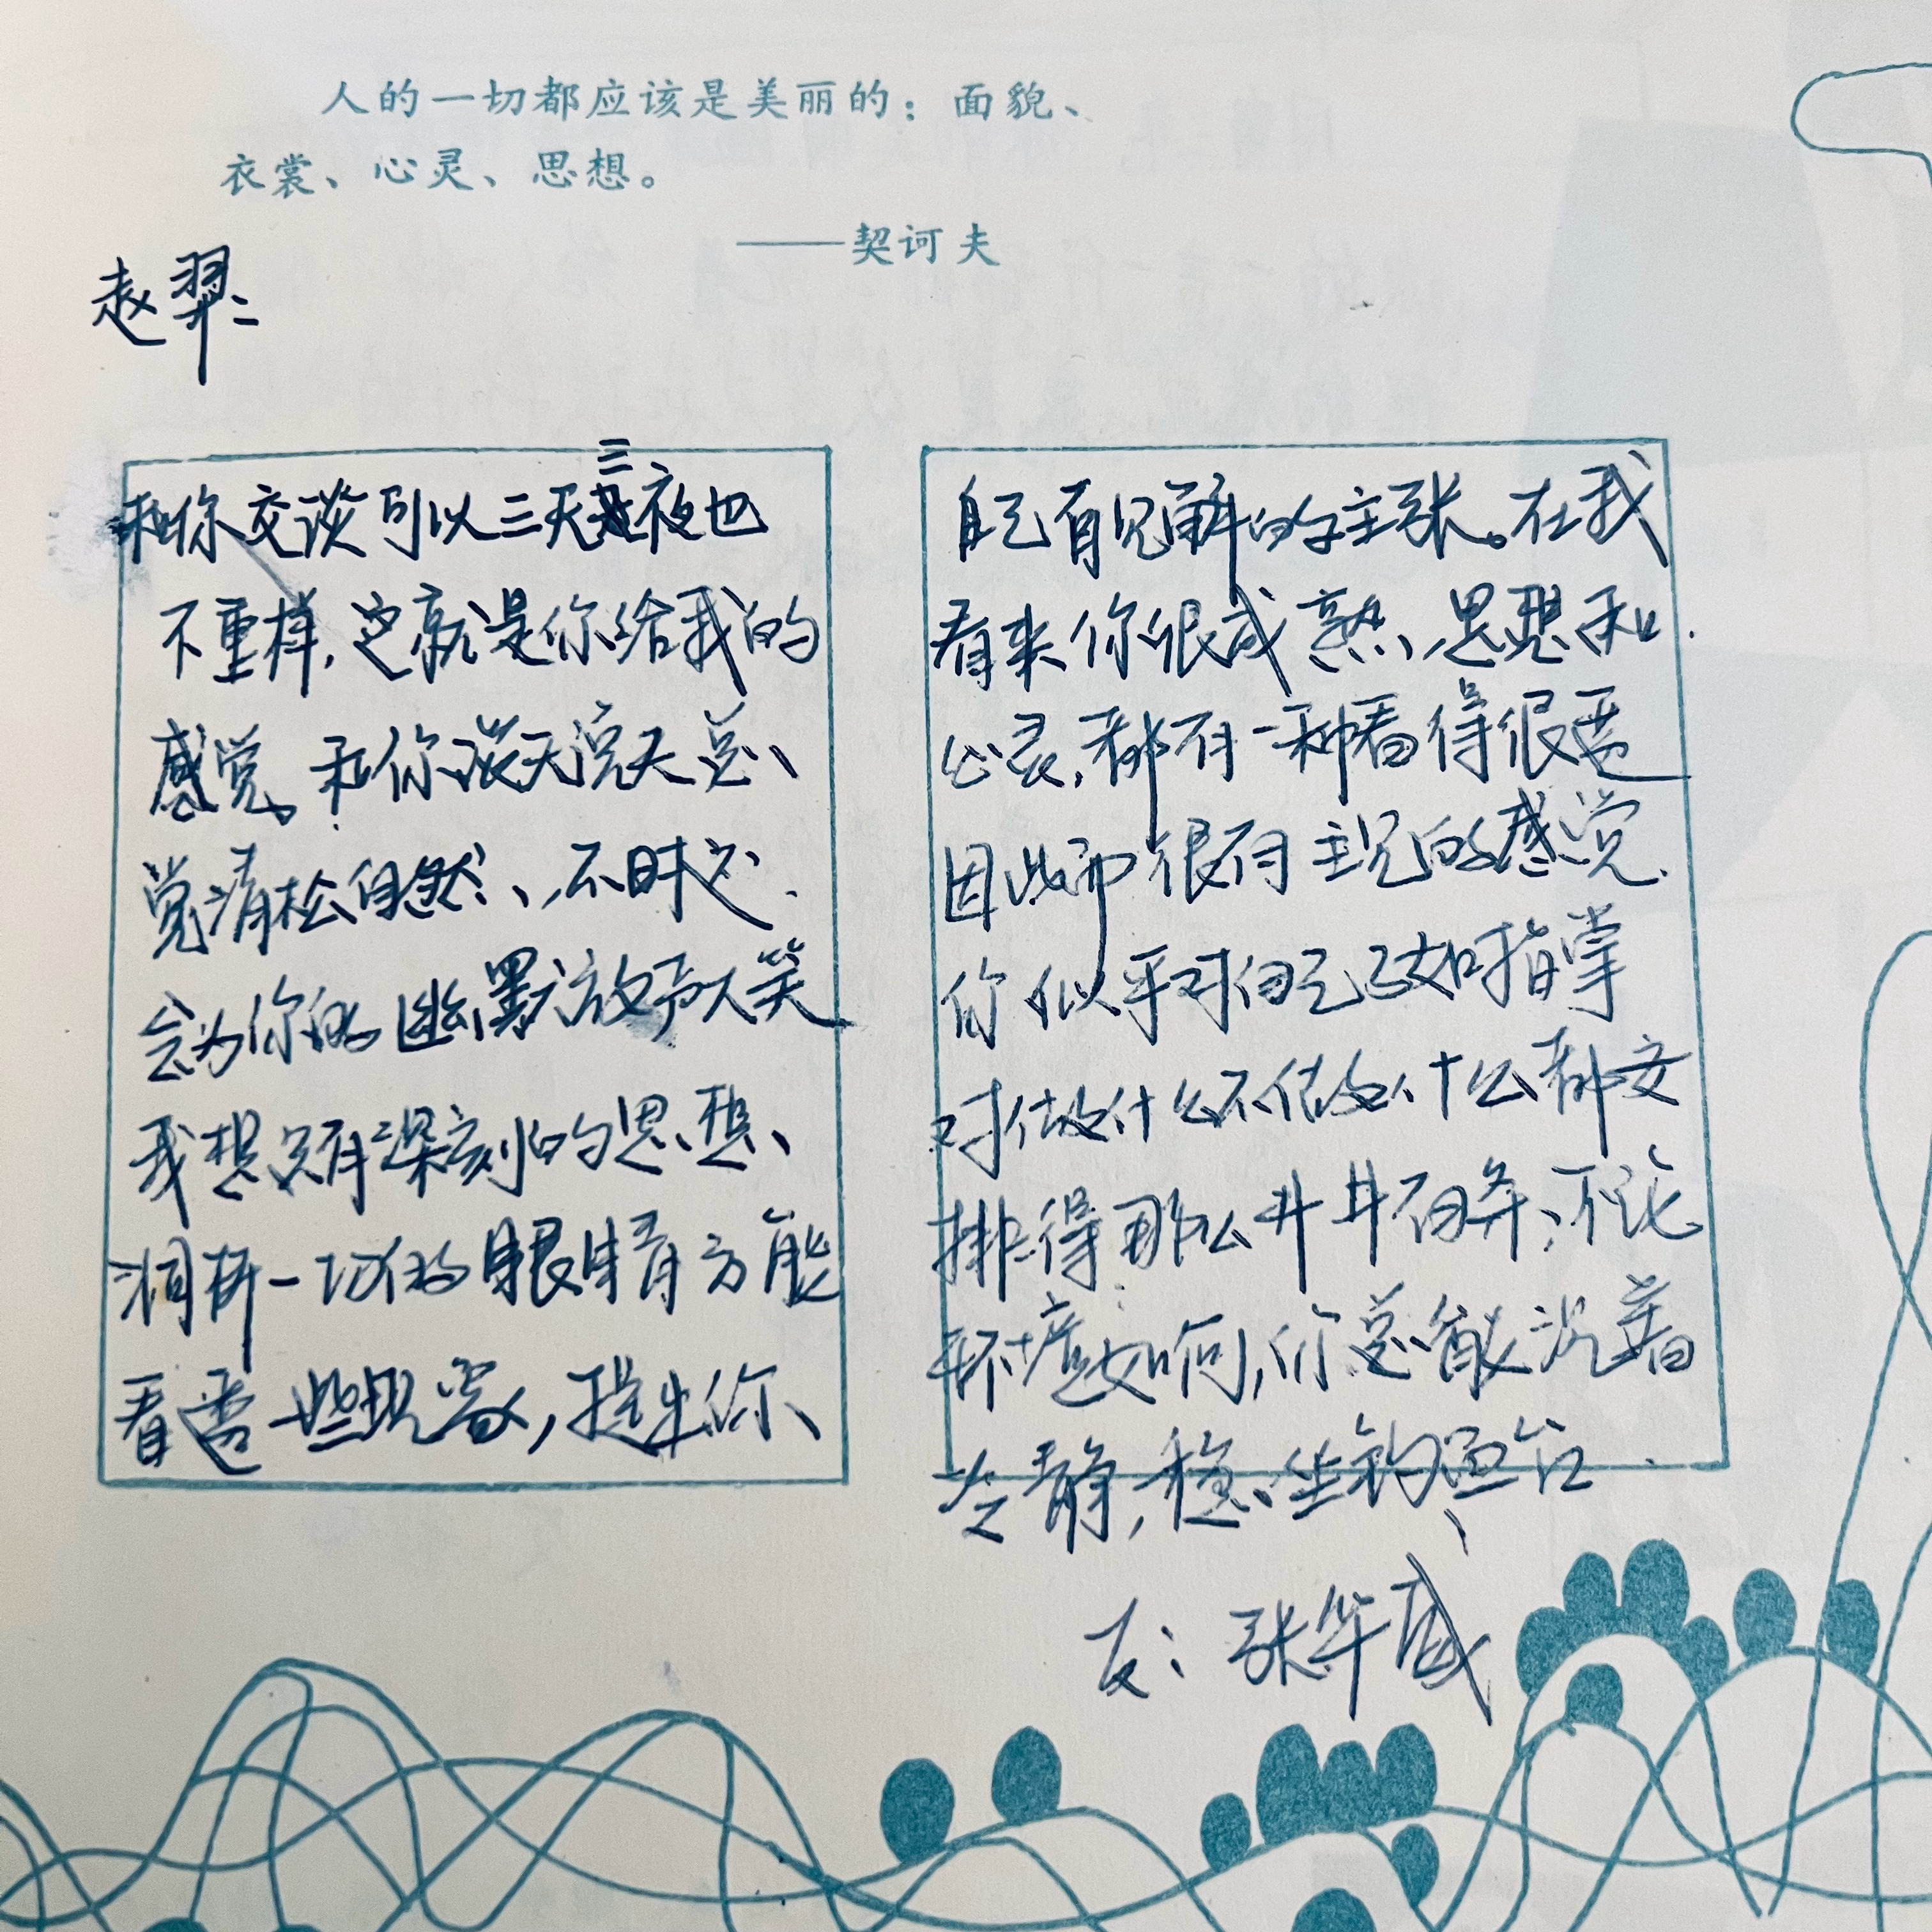 人的一切都应该是美丽的：面貌、
衣裳、心灵、思想。
——契诃夫
赵羿：
和你交谈可以三天三夜也
不重样，这就是你给我的
感觉。和你谈天说天总、
觉清松自然、，不时又
会为你的幽默放声大笑
我想只有深刻的思想、
洞析一切的眼睛方能
看透一些现象，提出你、
自己有见解的主张。在我
看来你很成熟、思想和
心灵，都有一种看得很透
因此而很有主见的感觉.
你似乎对自己了如指掌
对做什么不做什么都安
排得那么井井有条，不论
环境如何，你总能沉着
冷静，稳坐钓鱼台.
友：张华威